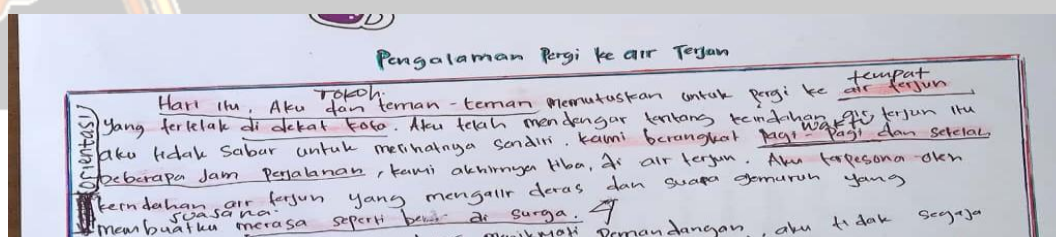 Pengalaman Pergi ke air Terjun
Tokoh: tempat
Hari itu, Aku dan teman-teman memutuskan untuk pergi ke air terjun
yang terletak di dekat kota. Aku telah mendengar tentang keindahan air terjun itu
waktu
aku tidak sabar untuk melihatnya sendiri. kami berangkat pagi-pagi dan setelah
beberapa Jam perjalanan, kami akhirnya tiba, di air terjun. Aku terpesona oleh
keindahan air terjun yang mengalir deras dan suara gemuruh yang
suasana:
membuatku merasa seperti di surga.
menikmati Pemandangan, aku tidak segaja
Orientasi